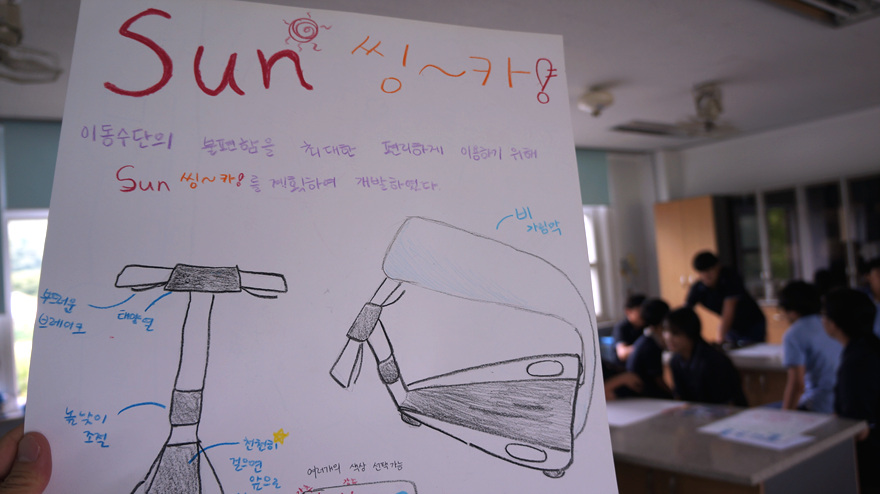 Sun 씽~카!
이동수단의 불편함을 최대한 편리하게 이용하기 위해
Sun 씽~카!를 계획하여 개발하였다
비
가림막
부드러운
브레이크
태양열
높낮이
조절
천천히
걸으면
앞으로
여러개의 색상 선택가능